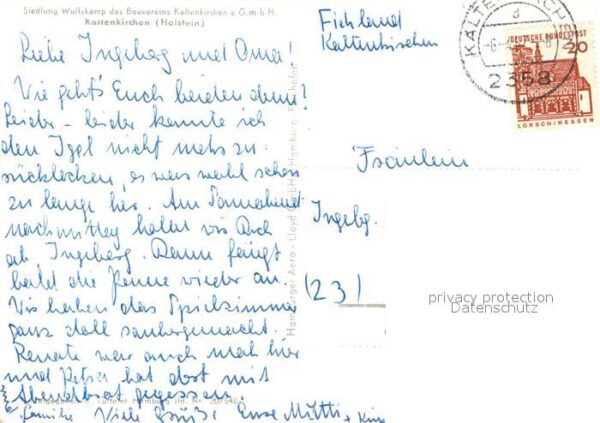 Siedlung Wulfskamp des Bauvereins Kaltenkirchen e G.m b H.
Kaltenkirchen (Holstein)
Liebe Ingeborg und Oma!
Wie geht's Euch beiden denn?
Leider - leider konnte ich
den Igel nicht mehr zu-
rücklocken, es war wohl schon
zu lange her. Am Sonnabend
nachmittag holen wir Dich
ab, Ingeborg. Dann fängt
bald die Penne wieder an.
Wir haben das Spielzimmer
ganz toll saubergemacht.
Renate war auch noch hier
und Peter hat dort mit
Abendbrot gegessen.
Familie Viele Grüße Eure Mutti +
Fichlend
Kaltenkirchen
KALTENKIRCHEN
a
2358
DEUTSCHE BUNDESPOST
20
LORSCH/HESSEN
Fräulein
Ingebg.
(23)
privacy protection
Datenschutz
Hamburger Aero-Lloyd GmbH Hamburg